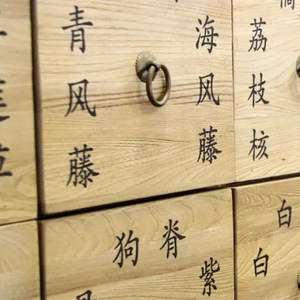 青风藤
海风藤
荔枝核
狗脊
紫
白
白
草